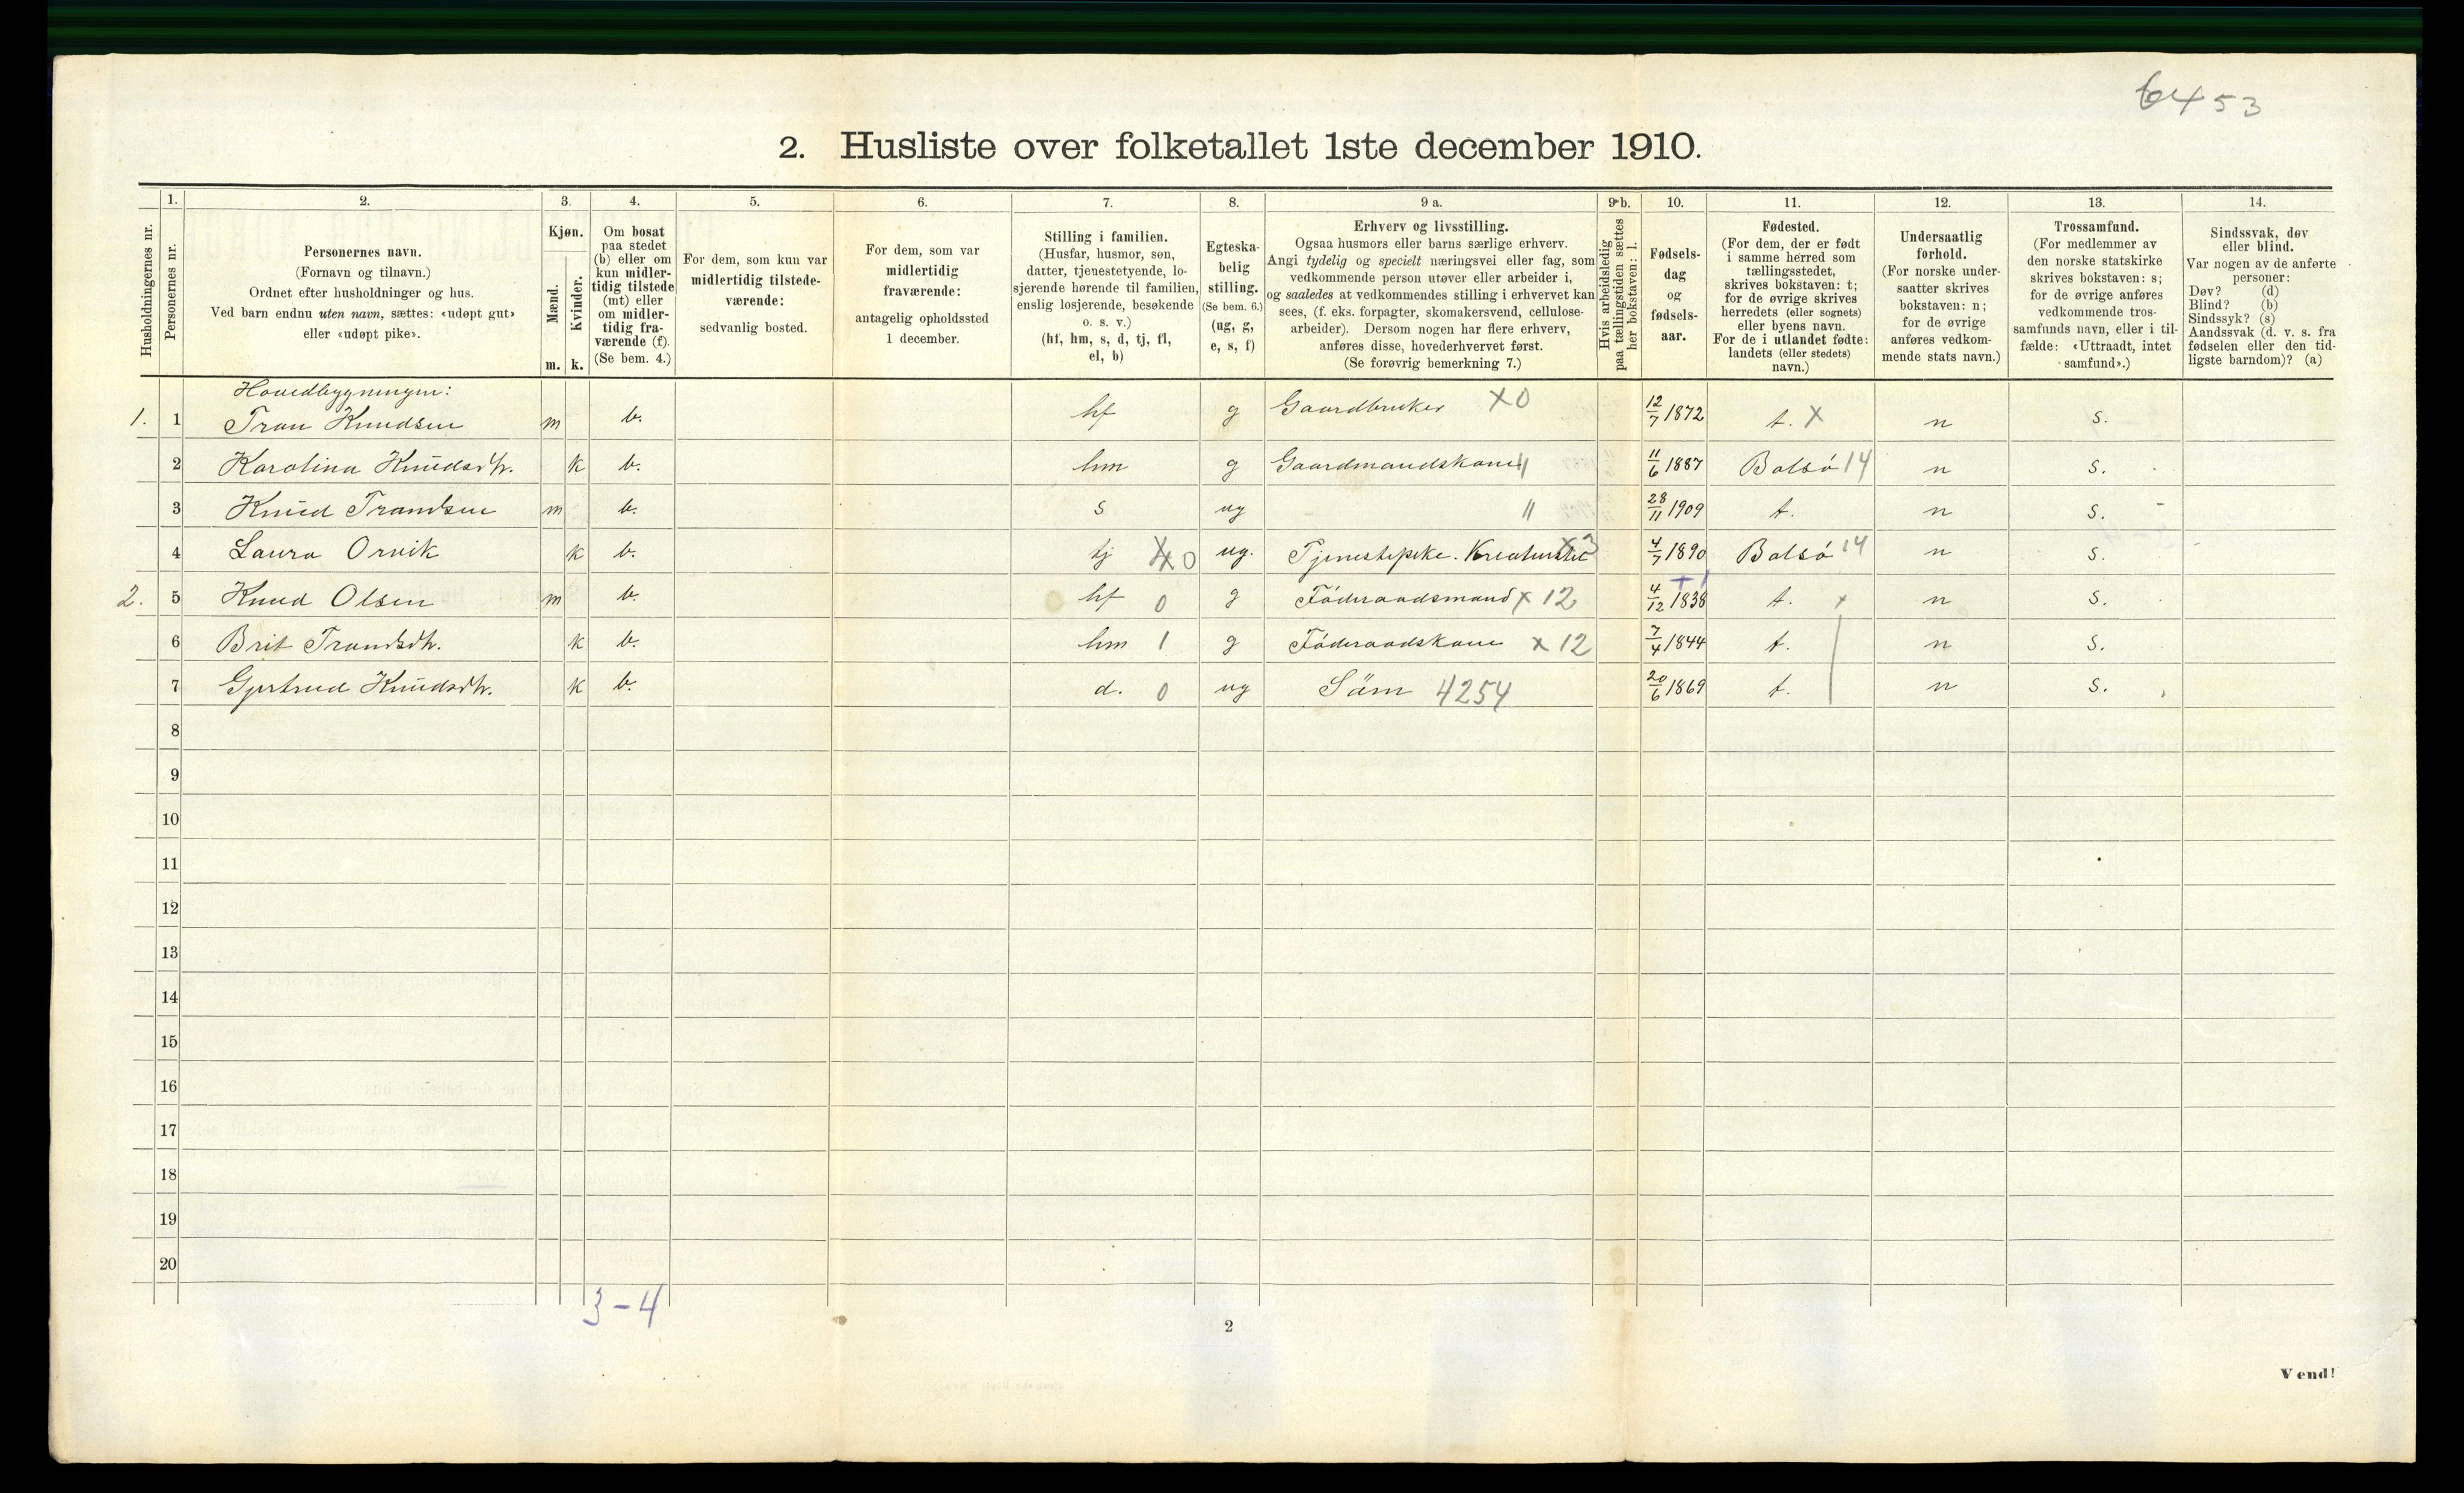 6453
2. Husliste over folketallet 1ste december 1910.
Husholdningernes nr.
1. Personernes nr.
2. Personernes navn.
(Fornavn og tilnavn.)
Ordnet efter husholdninger og hus.
Ved barn endnu uten navn, sættes: «udøpt gut»
eller «udøpt pike».
3. Kjøn.
Mænd. Kvinder.
m. k.
4. Om bosat
paa stedet
(b) eller om
kun midler-
tidig tilstede
(mt) eller
om midler-
tidig fra-
værende (f).
(Se bem. 4.)
5. For dem, som kun var
midlertidig tilstede-
værende:
sedvanlig bosted.
6. For dem, som var
midlertidig
fraværende:
antagelig opholdssted
1 december.
7. Stilling i familien.
(Husfar, husmor, søn,
datter, tjenestetyende, lo-
sjerende hørende til familien,
enslig losjerende, besøkende
o. s. v.)
(hf, hm, s, d, tj, fl,
el, b)
8. Egteska-
belig
stilling.
(Se bem. 6.)
(ug, g,
e, s, f)
9 a. Erhverv og livsstilling.
Ogsaa husmors eller barns særlige erhverv.
Angi tydelig og specielt næringsvei eller fag, som
vedkommende person utøver eller arbeider i,
og saaledes at vedkommendes stilling i erhvervet kan
sees, (f. eks. forpagter, skomakersvend, cellulose-
arbeider). Dersom nogen har flere erhverv,
anføres disse, hovederhvervet først.
(Se forøvrig bemerkning 7.)
9 b. Hvis arbeidsledig
paa tællingstiden sættes
her bokstaven: l.
10. Fødsels-
dag
og
fødsels-
aar.
11. Fødested.
(For dem, der er født
i samme herred som
tællingsstedet,
skrives bokstaven: t;
for de øvrige skrives
herredets (eller sognets)
eller byens navn.
For de i utlandet fødte:
landets (eller stedets)
navn.)
12. Undersaatlig
forhold.
(For norske under-
saatter skrives
bokstaven: n;
for de øvrige
anføres vedkom-
mende stats navn.)
13. Trossamfund.
(For medlemmer av
den norske statskirke
skrives bokstaven: s;
for de øvrige anføres
vedkommende tros-
samfunds navn, eller i til-
fælde: «Uttraadt, intet
samfund».)
14. Sindssvak, døv
eller blind.
Var nogen av de anførte
personer:
Døv? (d)
Blind? (b)
Sindssyk? (s)
Aandssvak (d. v. s. fra
fødselen eller den tid-
ligste barndom)? (a)
Hovedbygningen:
1. 1 Tron Knudsen m b. hf g Gaardbruker X0 12/7 1872 t. X n s.
2 Karolina Knudsdtr. k b. hm g Gaardmandskone 11 11/6 1887 Bolsö 14 n s.
3 Knud Trondsen m b. s ug 11 28/11 1909 t. n s.
4 Laura Orvik k b. tj X0 ug. Tjenestepike. Kreaturstel X3 4/7 1890 Bolsö 14 n s.
2. 5 Knud Olsen m b. hf 0 g Föderaadsmand x 12 4/12 1838 t. x n s.
6 Brit Trondsdtr. k b. hm 1 g Föderaadskone x 12 7/4 1844 t. n s.
7 Gjertrud Knudsdtr. k b. d. 0 ug Söm 4254 20/6 1869 t. n s.
8
9
10
11
12
13
14
15
16
17
18
19
20
3-4
2
Vend!